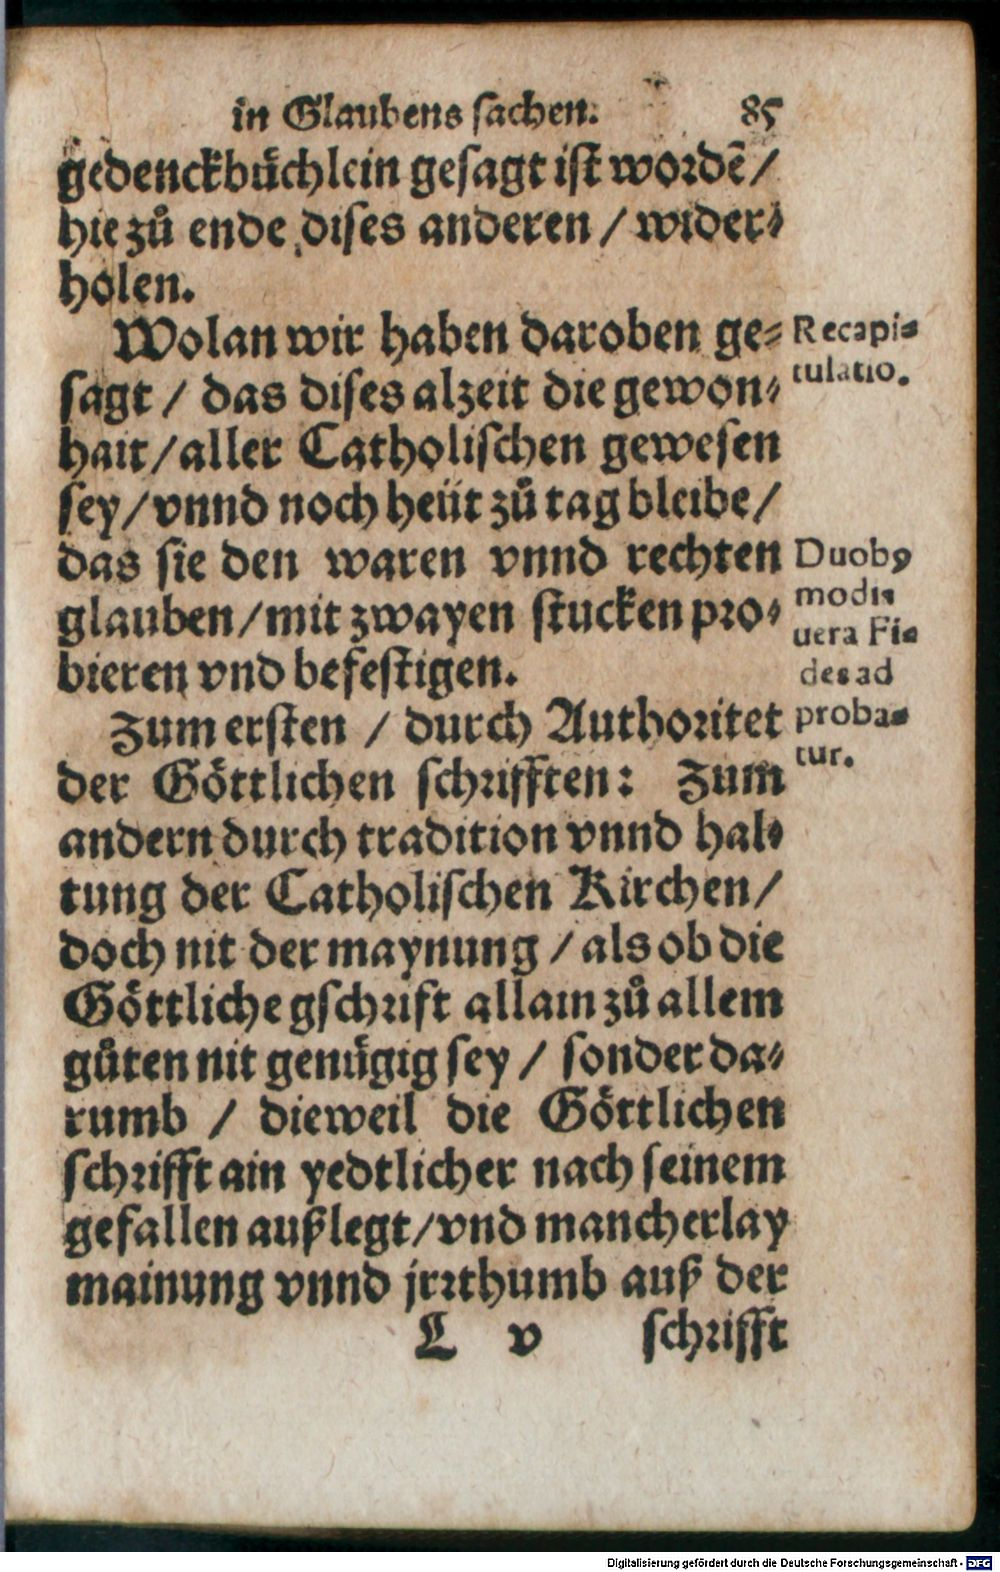 in Glaubens sachen. 85
gedenckbuͤchlein gesagt ist wordē/
hie zuͦ ende dises anderen / wider-
holen.
Wolan wir haben daroben ge-
sagt / das dises alzeit die gewon-
hait/aller Catholischen gewesen
sey/vnnd noch heüt zuͦ tag bleibe/
das sie den waren vnnd rechten
glauben/mit zwayen stucken pro-
bieren vnd befestigen.
Zum ersten / durch Authoritet
der Goͤttlichen schrifften: Zum
andern durch tradition vnnd hal-
tung der Catholischen Kirchen/
doch nit der maynung /als ob die
Goͤttliche gschrift allain zuͦ allem
guͦten nit genuͤgig sey / sonder da-
rumb / dieweil die Goͤttlichen
schrifft ain yedtlicher nach seinem
gefallen außlegt/vnd mancherlay
mainung vnnd jrrthumb auß der
L v schrifft
Recapi-
tulatio.
Duobꝰ
modis
uera Fi-
des ad
proba-
tur.
Digitalisierung gefördert durch die Deutsche Forschungsgemeinschaft - DFG